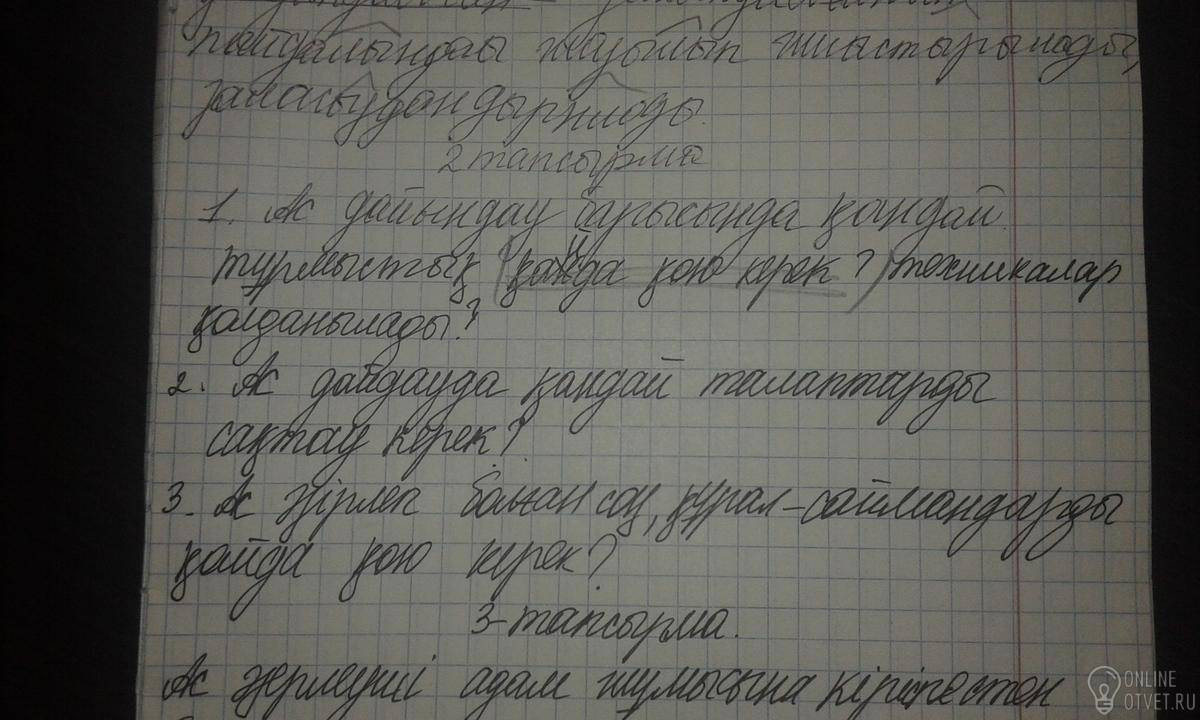 пайдаланылады жауынып ығыстырылады,
залалсыздандырылады.
2 тапсырма
1. Ас дайындау барысында қандай
тұрмыстық (қайда қою керек?) техникалар
қолданылады?
2. Ас дайдауда қандай талаптарды
сақтау керек?
3. Ас әзірлек болған соң, құрал-саймандарды
қайда қою керек?
3-тапсырма.
Ас әзірлеуші адам жұмысына кіріспестен
ONLINE
OTVET.RU